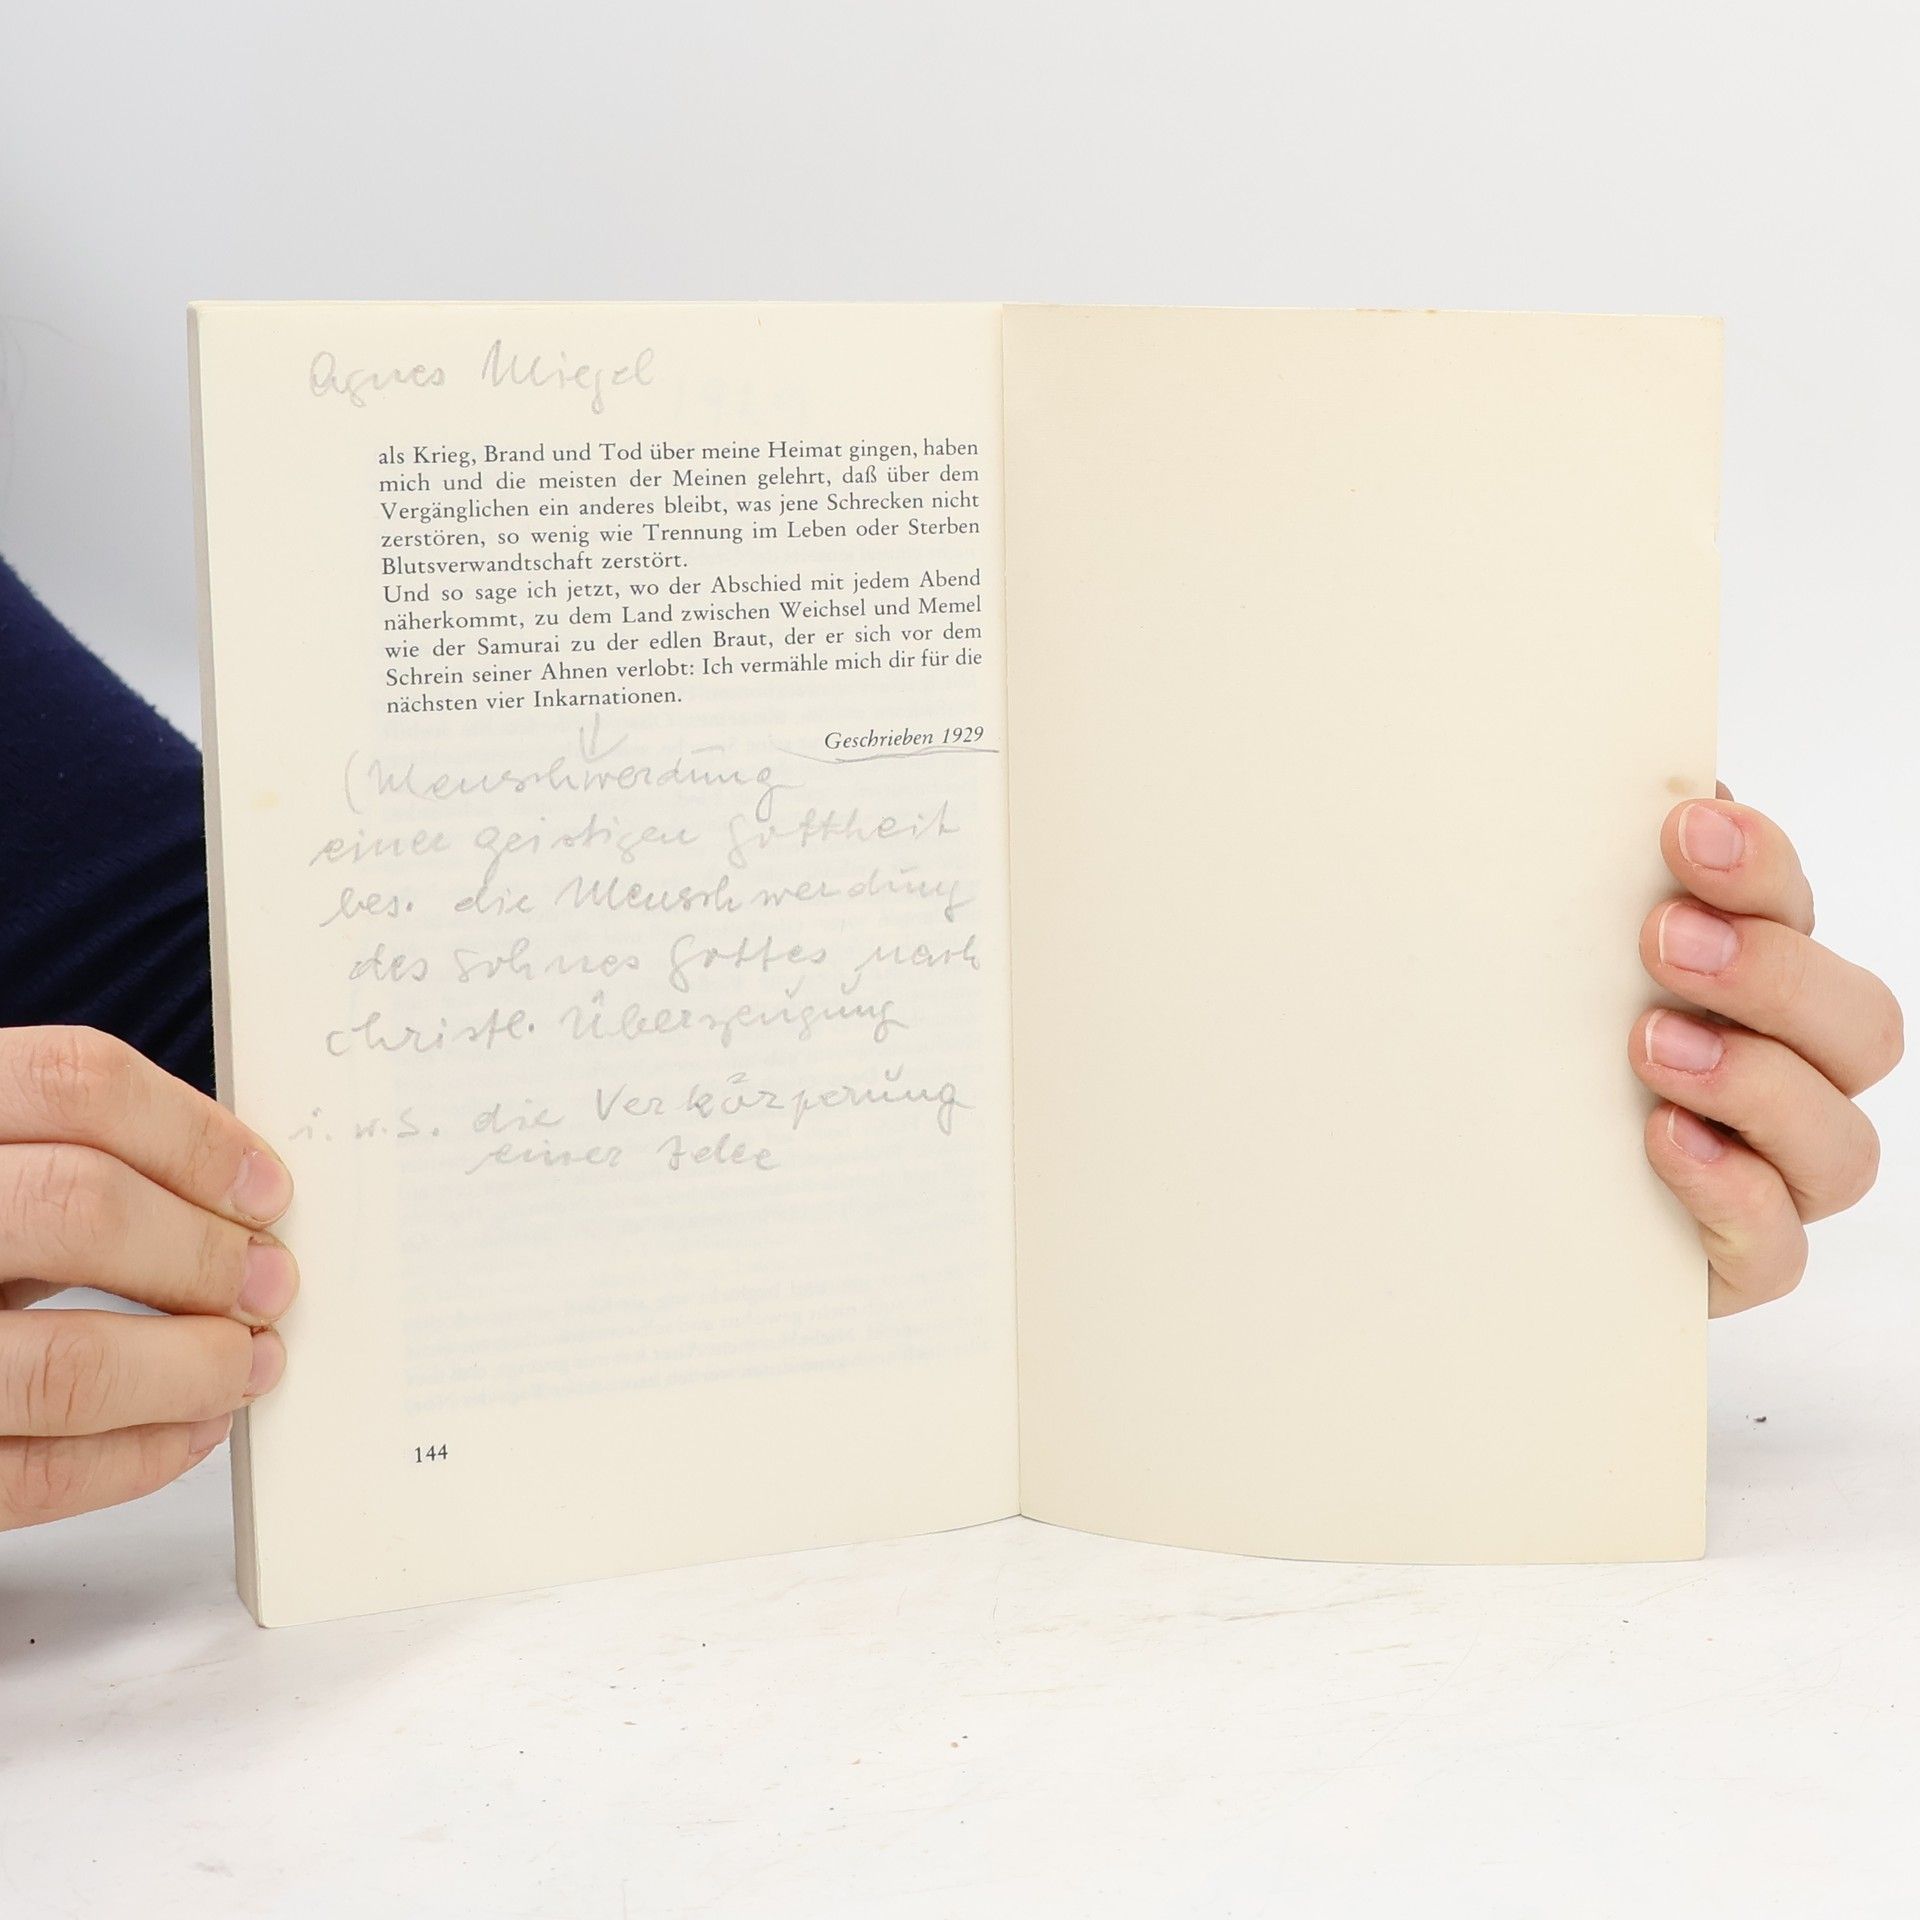 Agnes Miegel
als Krieg, Brand und Tod über meine Heimat gingen, haben
mich und die meisten der Meinen gelehrt, daß über dem
Vergänglichen ein anderes bleibt, was jene Schrecken nicht
zerstören, so wenig wie Trennung im Leben oder Sterben
Blutsverwandtschaft zerstört.
Und so sage ich jetzt, wo der Abschied mit jedem Abend
näherkommt, zu dem Land zwischen Weichsel und Memel
wie der Samurai zu der edlen Braut, der er sich vor dem
Schrein seiner Ahnen verlobt: Ich vermähle mich dir für die
nächsten vier Inkarnationen.
Geschrieben 1929
(Menschwerdung
einer geistigen Gottheit
bes. die Menschwerdung
des Sohnes Gottes nach
christl. Überzeugung
i. w. S. die Verkörperung
einer Idee
144